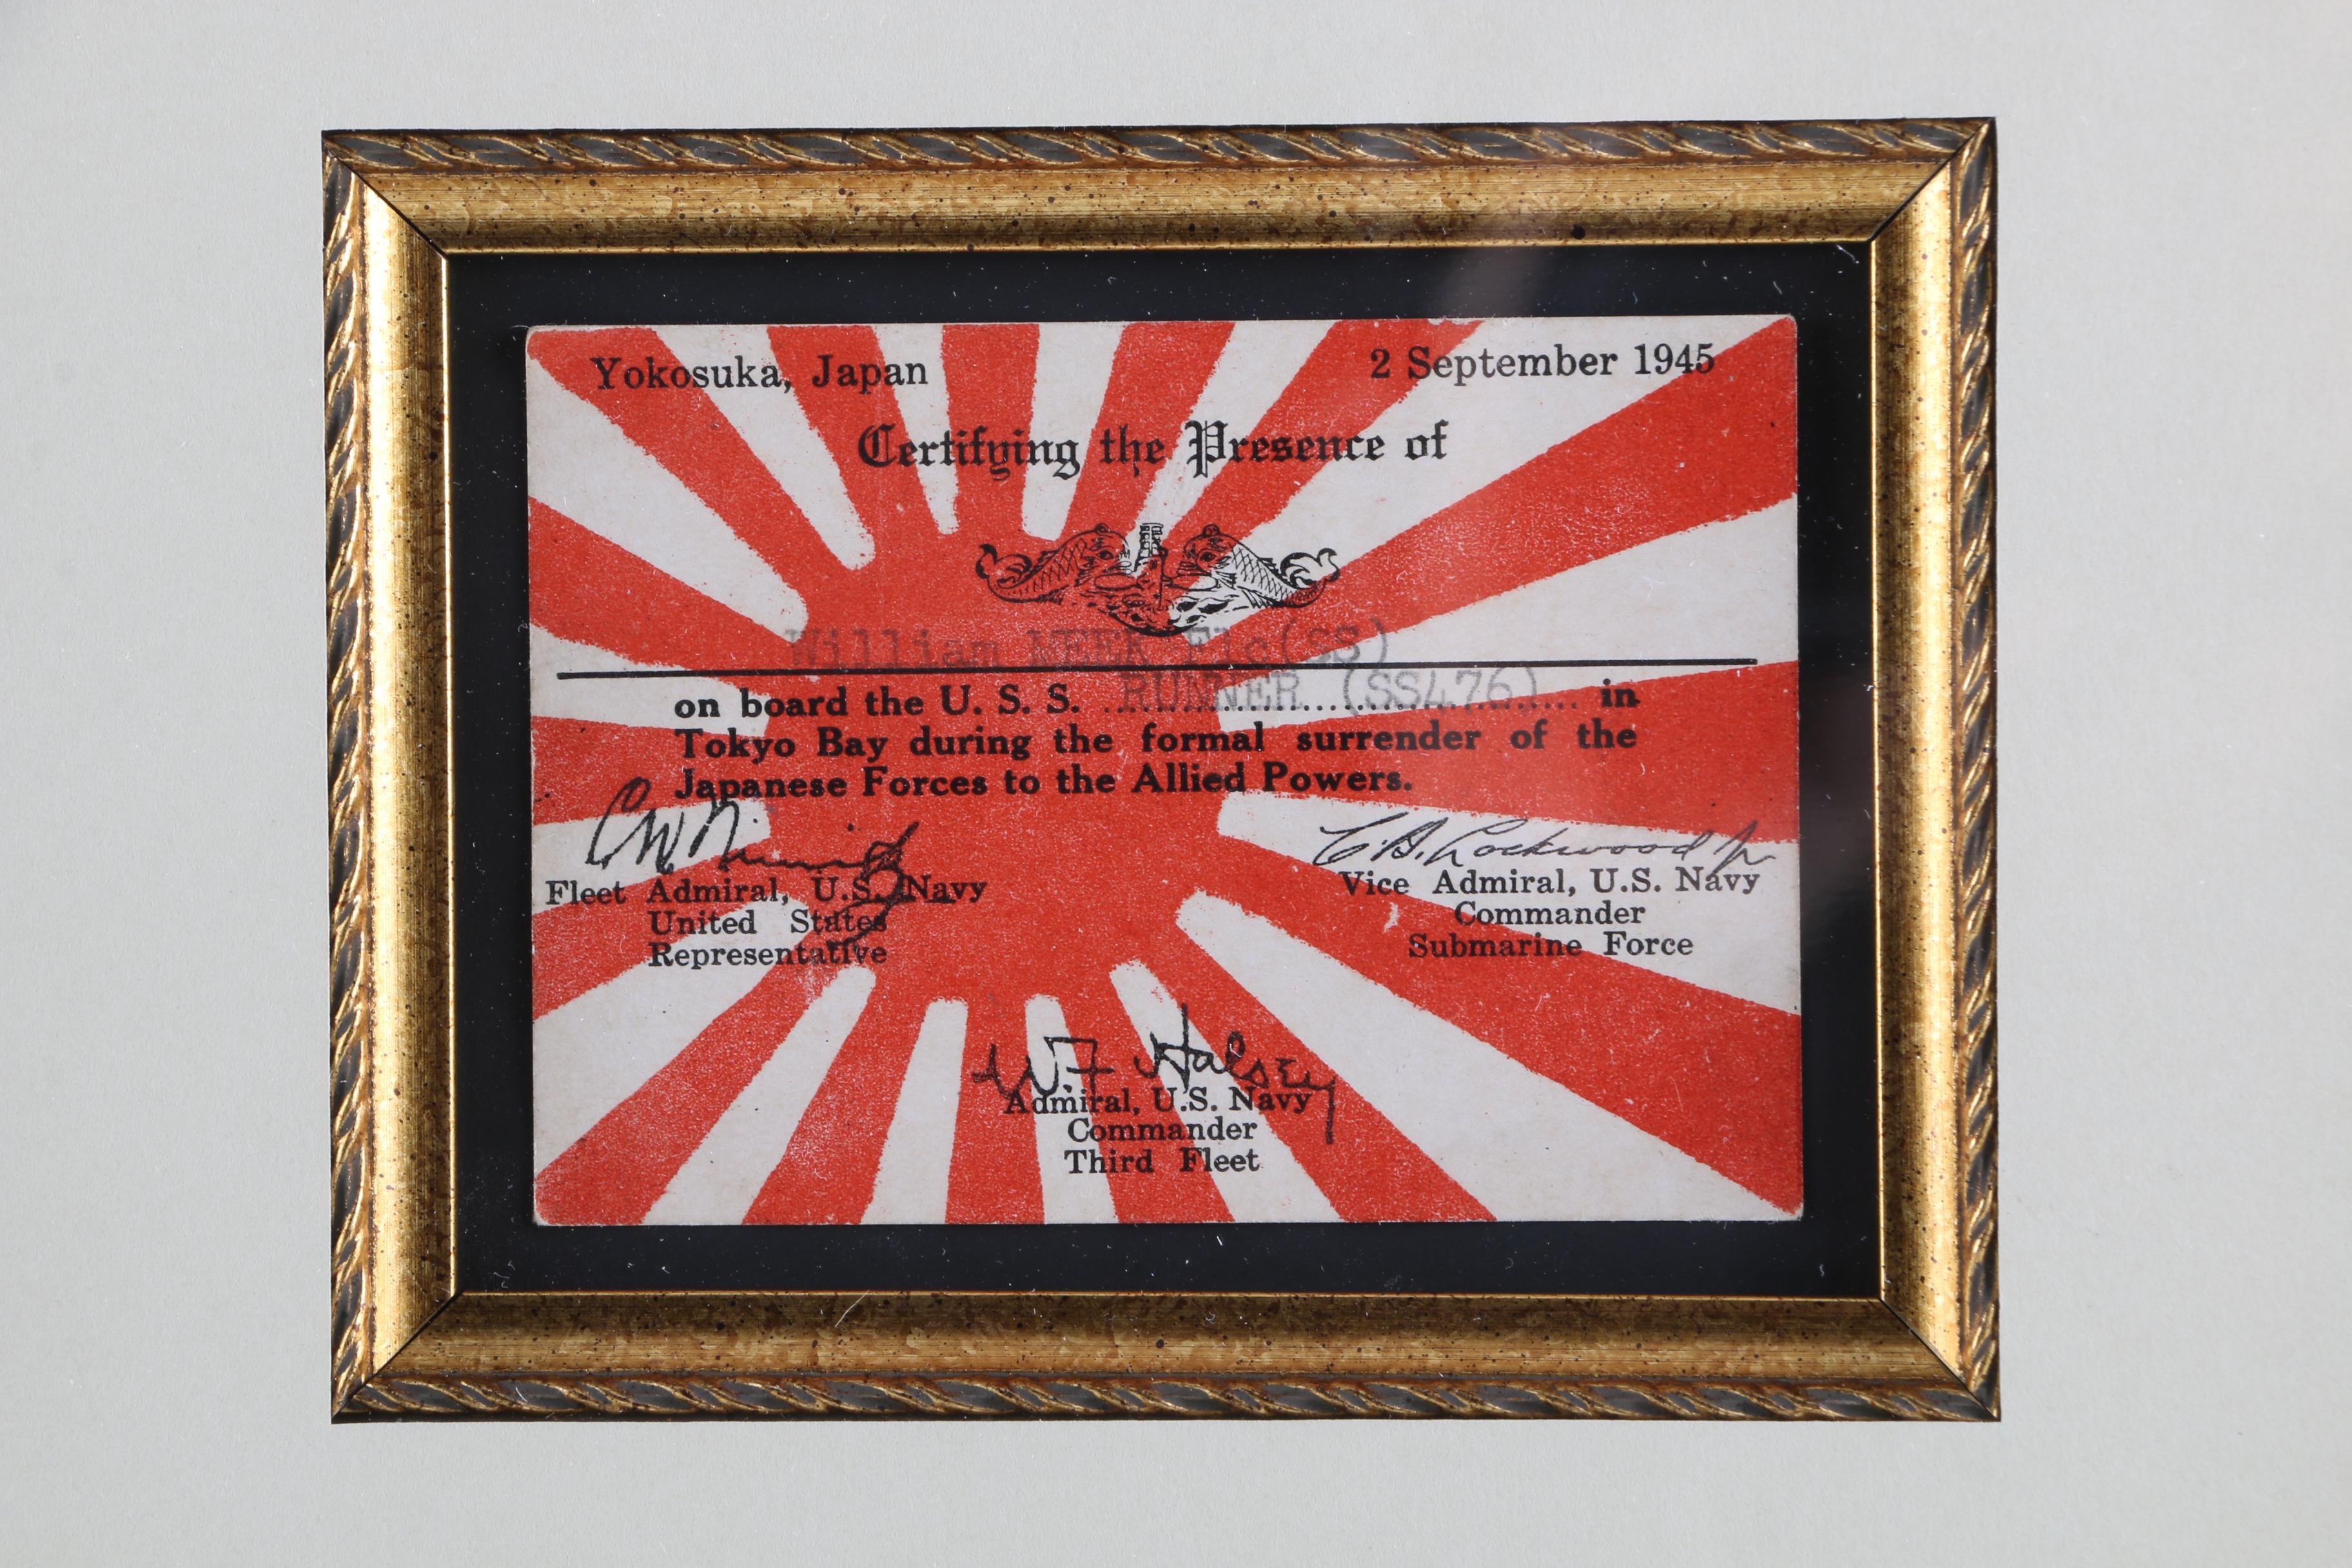 Yokosuka, Japan 2 September 1945
Certifying the Presence of
William MEEK F1c(SS)
on board the U. S. S. RUNNER (SS476) in
Tokyo Bay during the formal surrender of the
Japanese Forces to the Allied Powers.
C W Nimitz
Fleet Admiral, U.S. Navy
United States
Representative
C. A. Lockwood Jr
Vice Admiral, U.S. Navy
Commander
Submarine Force
W. F Halsey
Admiral, U.S. Navy
Commander
Third Fleet